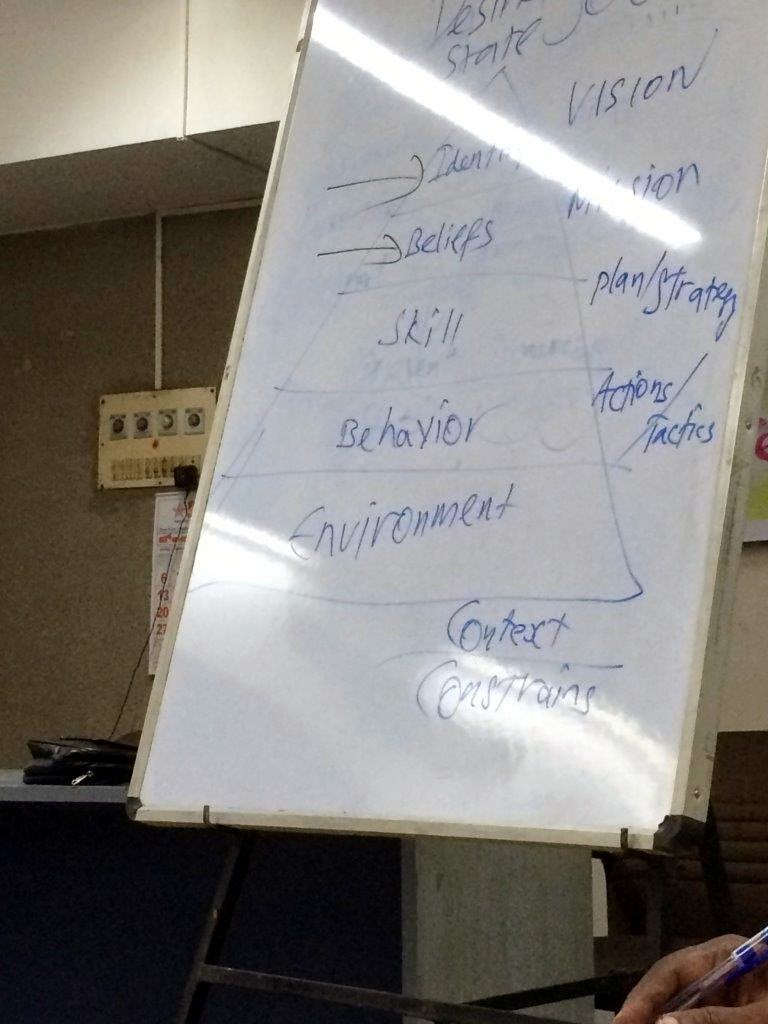 state
VISION
Mission
Beliefs
Plan/Strategy
Skill
Actions/
Tactics
Behavior
Environment
Context
Constrains
6
13
20
27